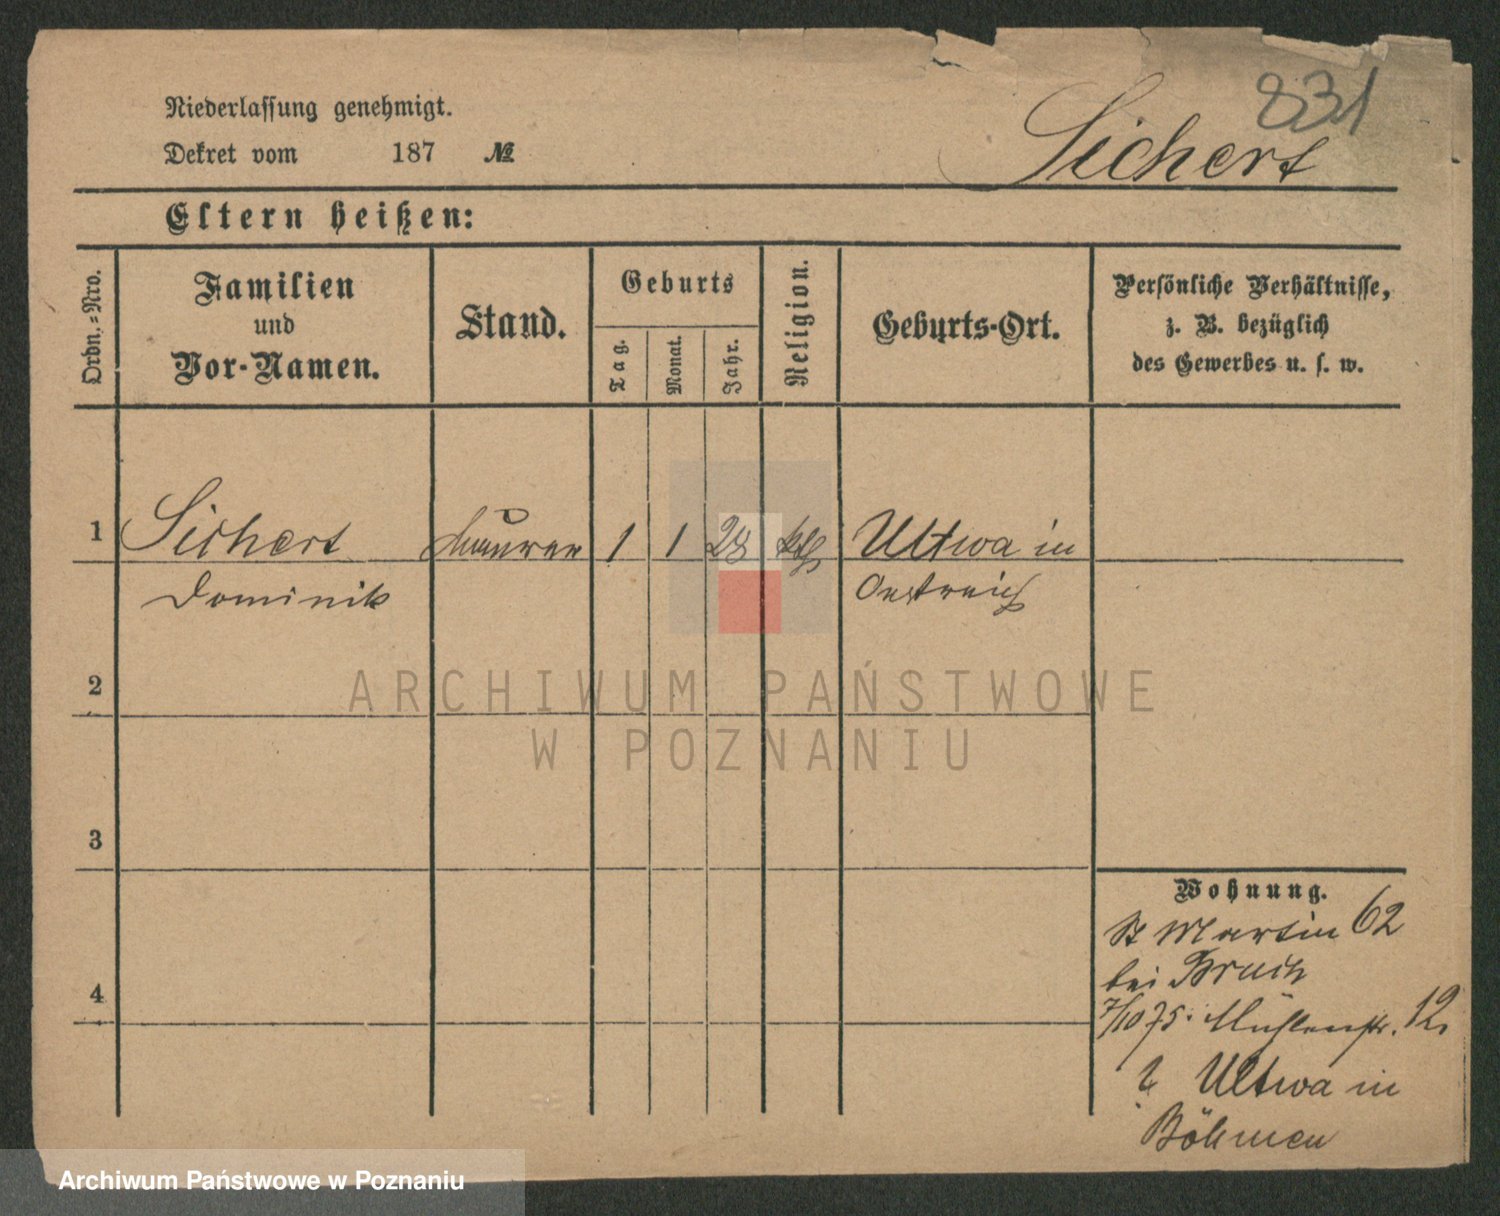 831
Niederlassung genehmigt.
Dekret vom 187 №
Sichert
Eltern heißen:
Ordn.-Nro.
Familien
und
Vor-Namen.
Stand.
Geburts
Tag.
Monat.
Jahr.
Religion.
Geburts-Ort.
Persönliche Verhältnisse,
z. B. bezüglich
des Gewerbes u. s. w.
1 Sichert Maurer 1 1 28 kth Ultwa in
Dominik Oestreich
2
ARCHIWUM PAŃSTWOWE
W POZNANIU
3
Wohnung.
St Martin 62
bei Bruch
4
7/10 75. Mühlenstr. 12.
Ultwa in
Böhmen
Archiwum Państwowe w Poznaniu